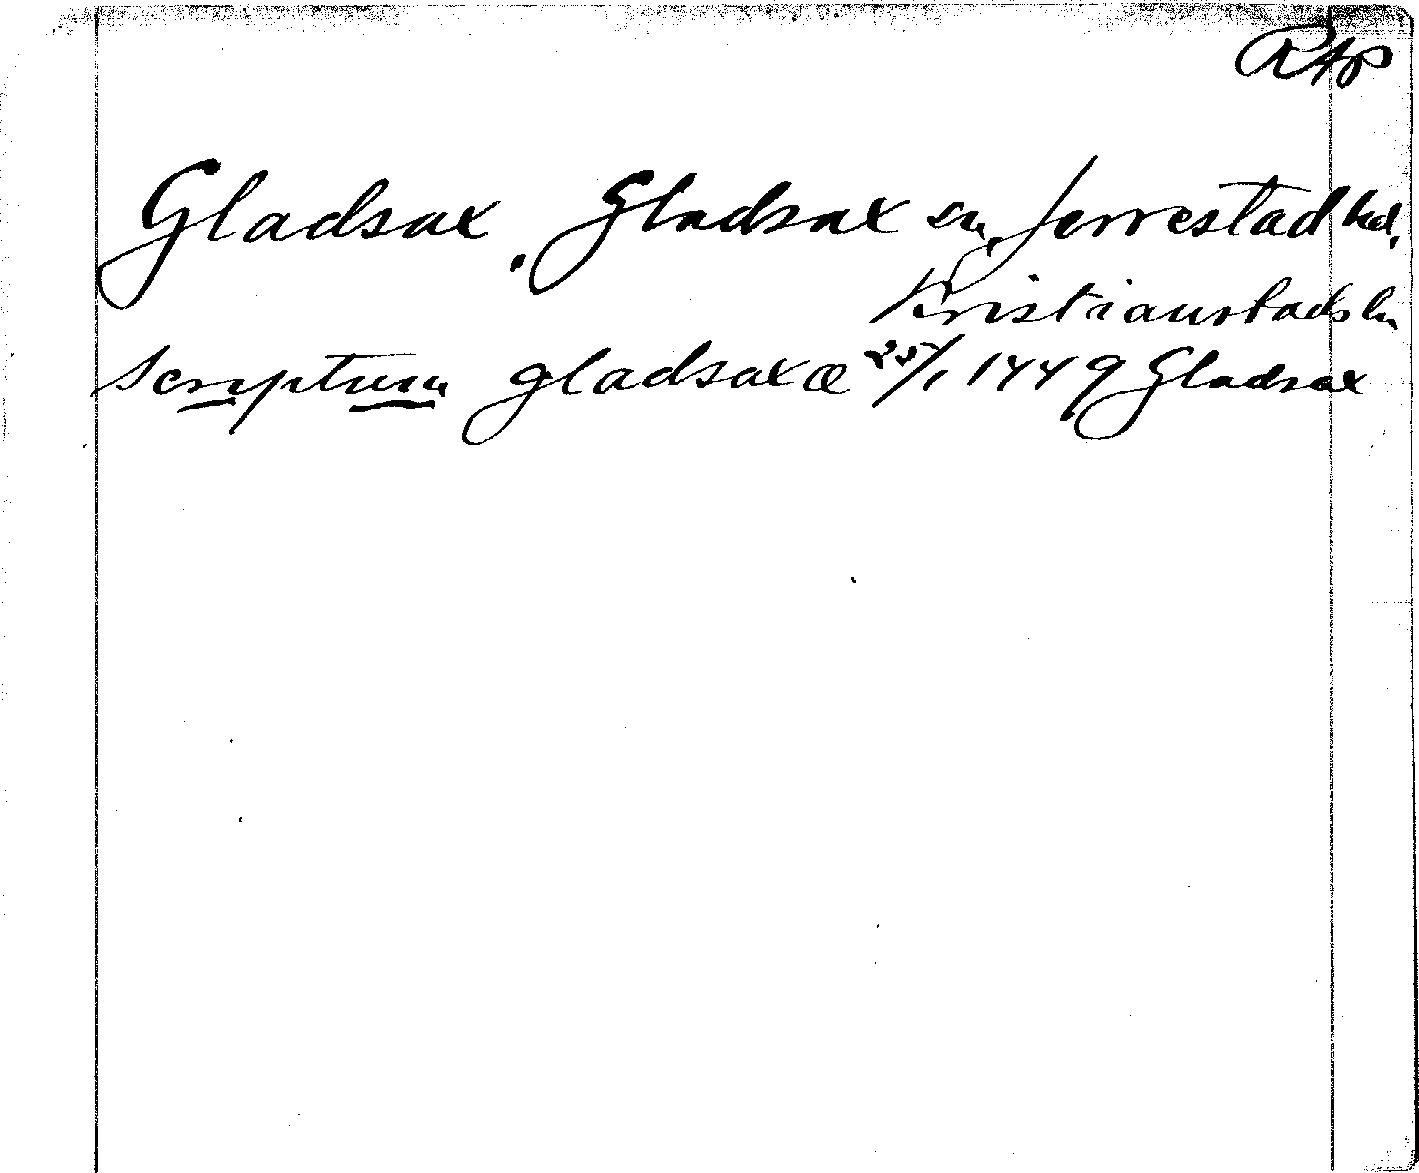 RAP
Gladsax. Gladsax sn, Jerrestad hd,
Kristianstads ln
Scriptum gladsaxæ 25/1 1449 Gladsax